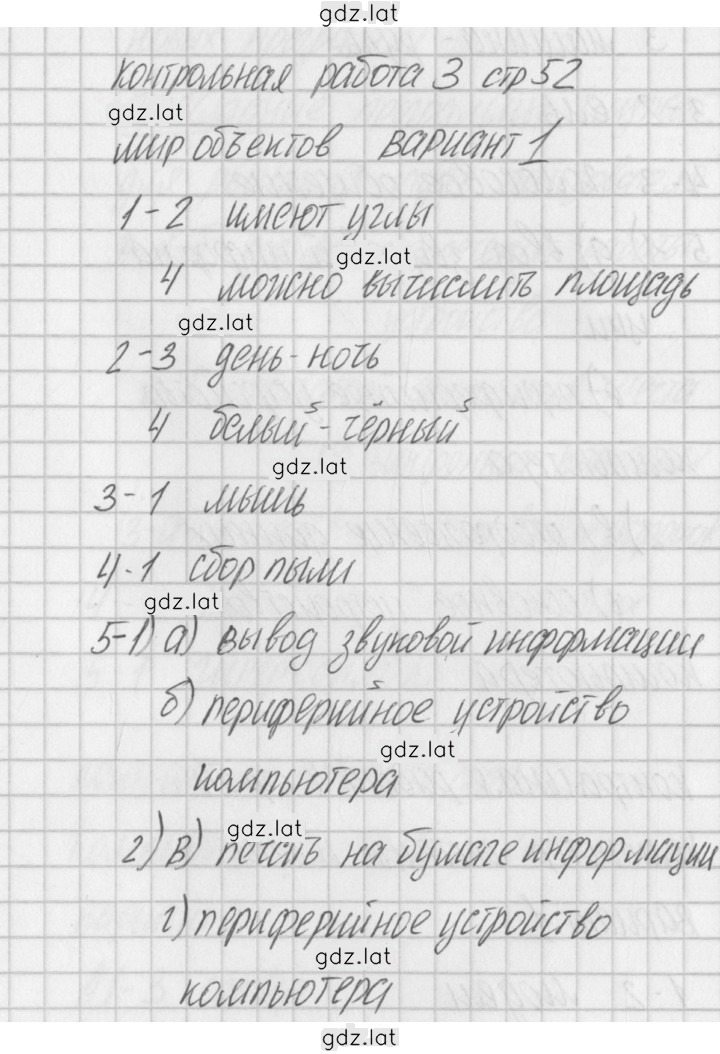 gdz.lat
контрольная работа 3 стр 52
gdz.lat
мир объектов вариант 1
1-2 имеют углы
gdz.lat
4 можно вычислить площадь
gdz.lat
2-3 день-ночь
4 белый-чёрный
gdz.lat
3-1 мышь
4-1 сбор пыли
gdz.lat
5-1) а) вывод звуковой информации
б) периферийное устройство
gdz.lat
компьютера
gdz.lat
2) в) печать на бумаге информации
г) периферийное устройство
gdz.lat
компьютера
gdz.lat